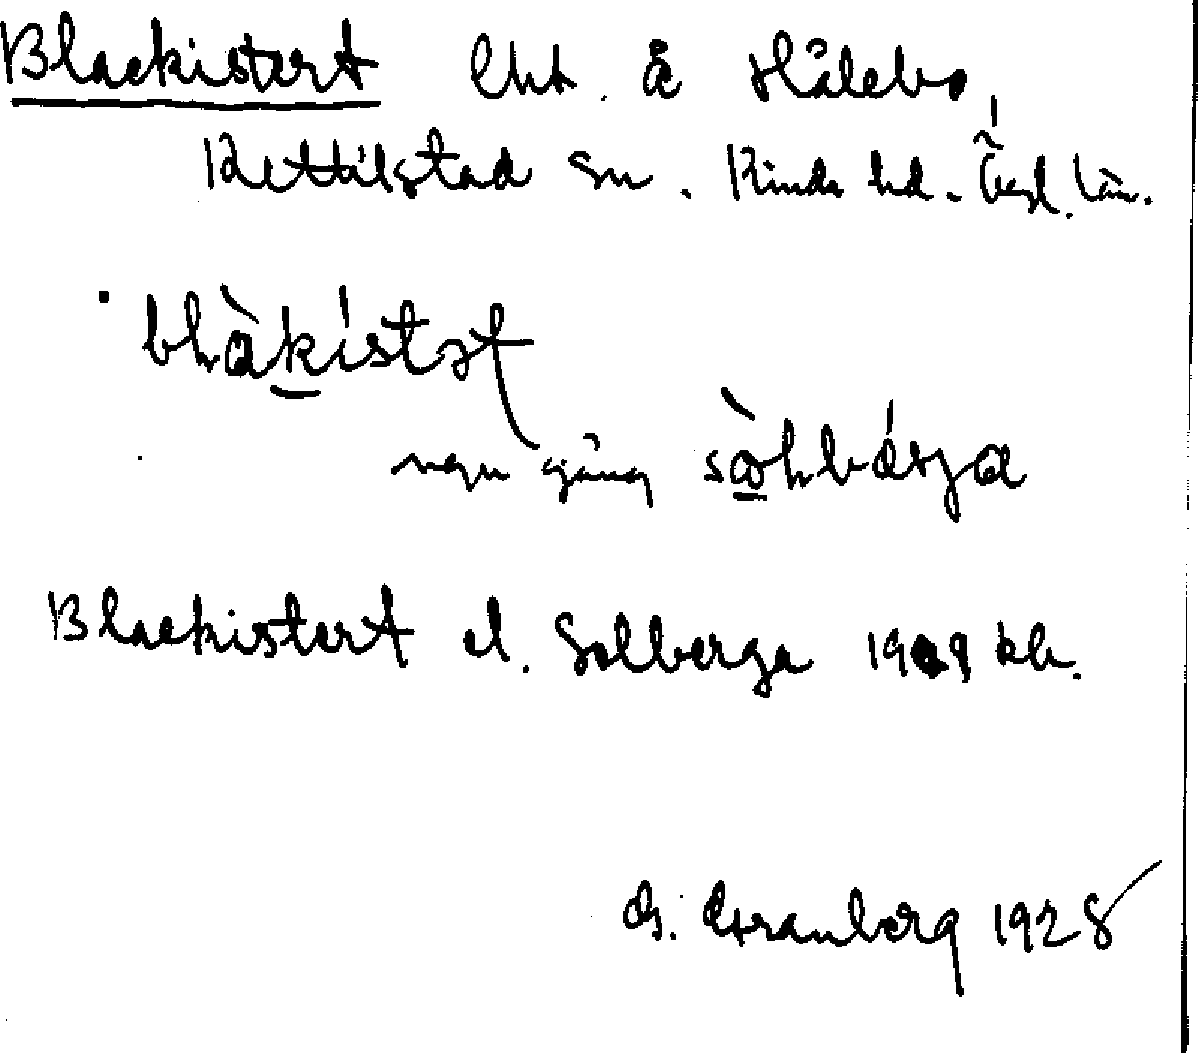 Blackistert lht. å Hålebo,
Kettilstad sn. Kinda hd. Östl. län.
blàkístət
ngn gång sòlbárja
Blackistert el. Solberga 1909 kb.
G. Granberg 1928